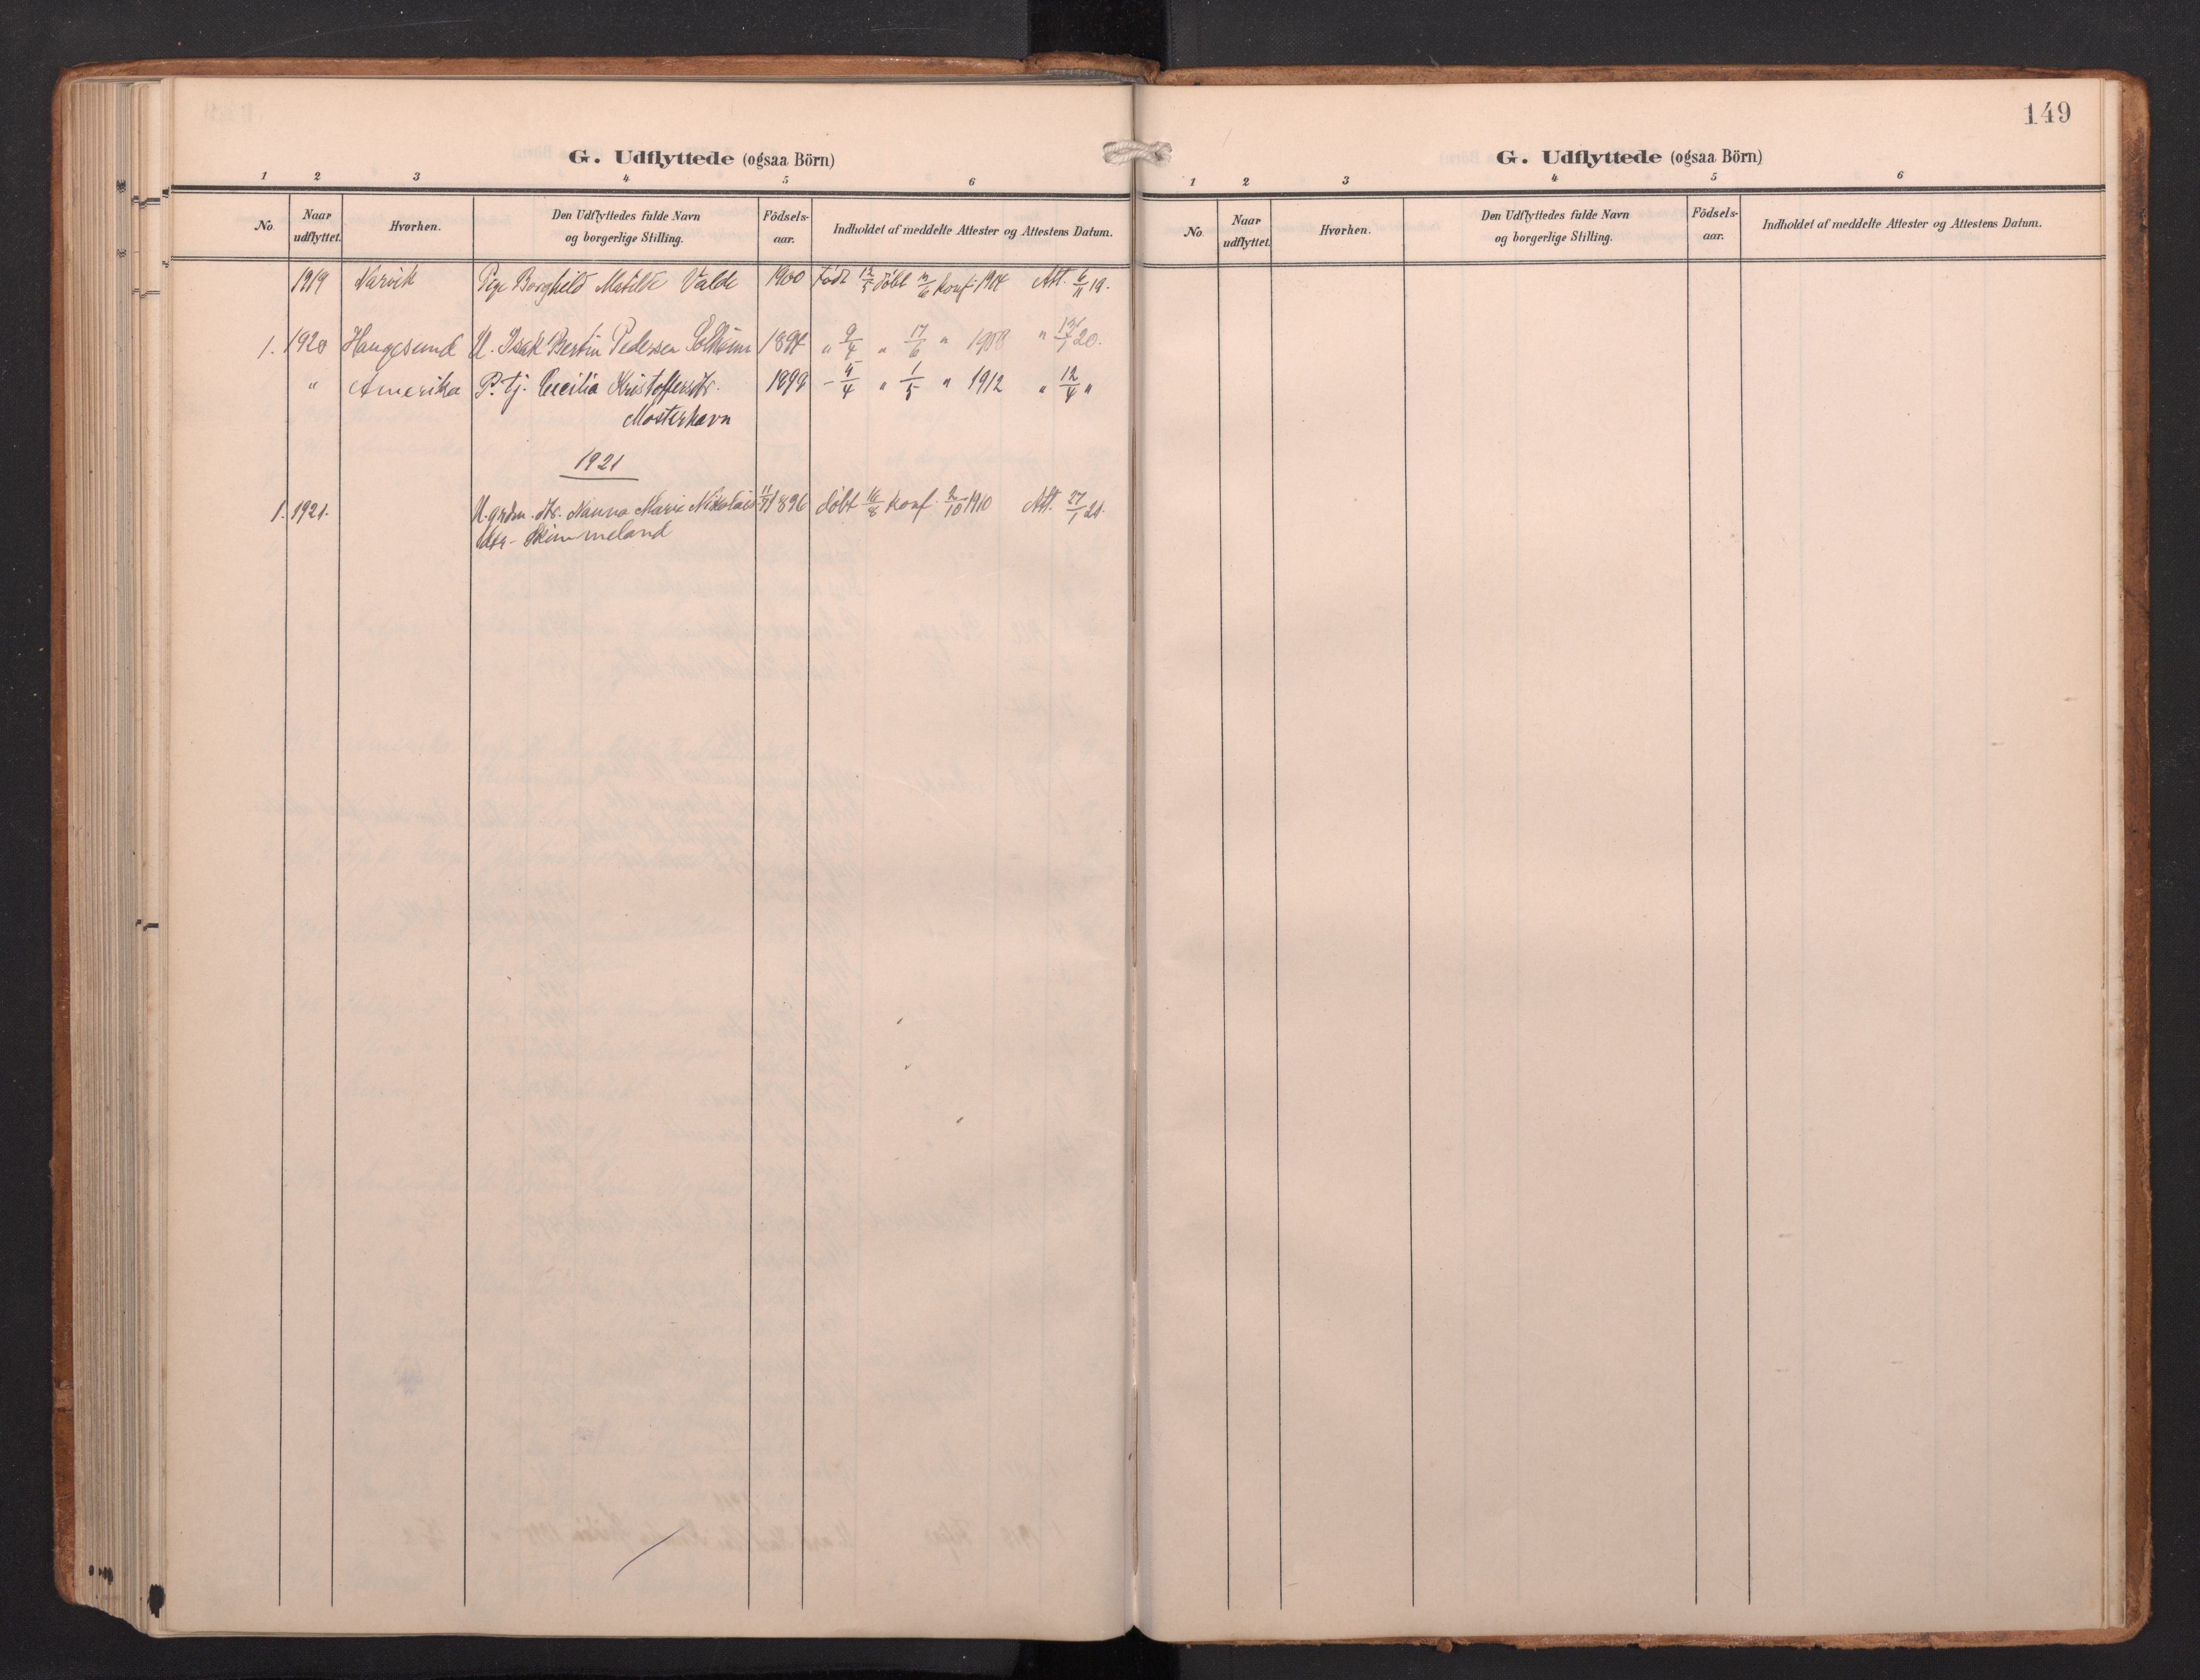 G. Udflyttede (ogsaa Börn)
1 2 3 4 5 6
No. Naar udflyttet. Hvorhen. Den Udflyttedes fulde Navn og borgerlige Stilling. Födsels-aar. Indholdet af meddelte Attester og Attestens Datum.
1919 Narvik Pige Borghild Matilde Valde 1900 Født 12/5 døbt 3/6 konf. 1914 Att. 6/11 19.
1. 1920 Haugesund U. Isak Bertin Pedersen Solheim 1894 " 9/4 " 17/6 " 1908 " 13/1 20.
" Amerika P. tj. Cecilia Kristoffersdtr. 1899 - 4/4 " 1/5 " 1912 " 12/4 "
Mosterhavn
1921
1. 1921. U. grdm. dtr. Nanna Marie Nikolais- 11/7 1896 døbt 16/8 konf. 2/10 1910 Att. 27/1 21.
dtr. Skimmeland
149
G. Udflyttede (ogsaa Börn)
1 2 3 4 5 6
No. Naar udflyttet. Hvorhen. Den Udflyttedes fulde Navn og borgerlige Stilling. Födsels-aar. Indholdet af meddelte Attester og Attestens Datum.